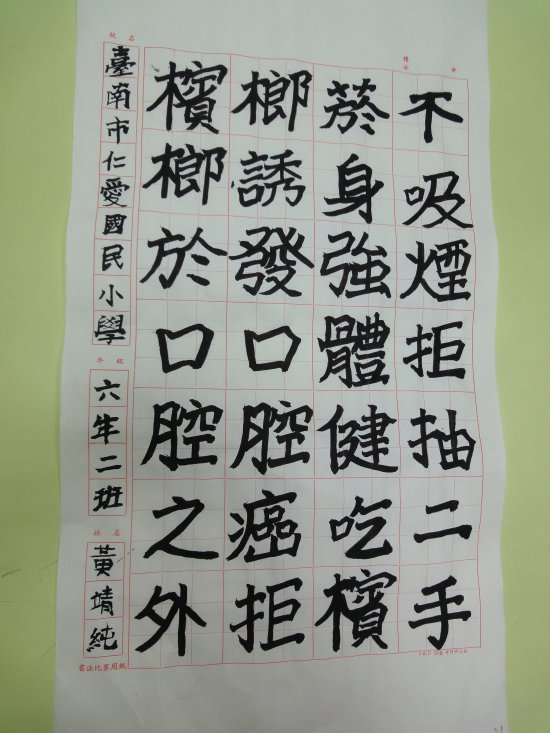 得分 分
不吸煙拒抽二手
菸身強體健吃檳
榔誘發口腔癌拒
檳榔於口腔之外
校名
臺南市仁愛國民小學
年級
六年二班
姓名
黃靖純
書法比賽用紙